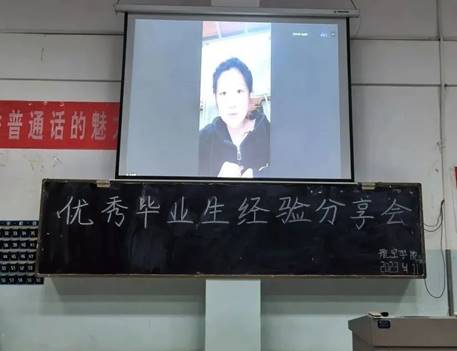 普通话的魅
优秀毕业生经验分享会
2023.4.11